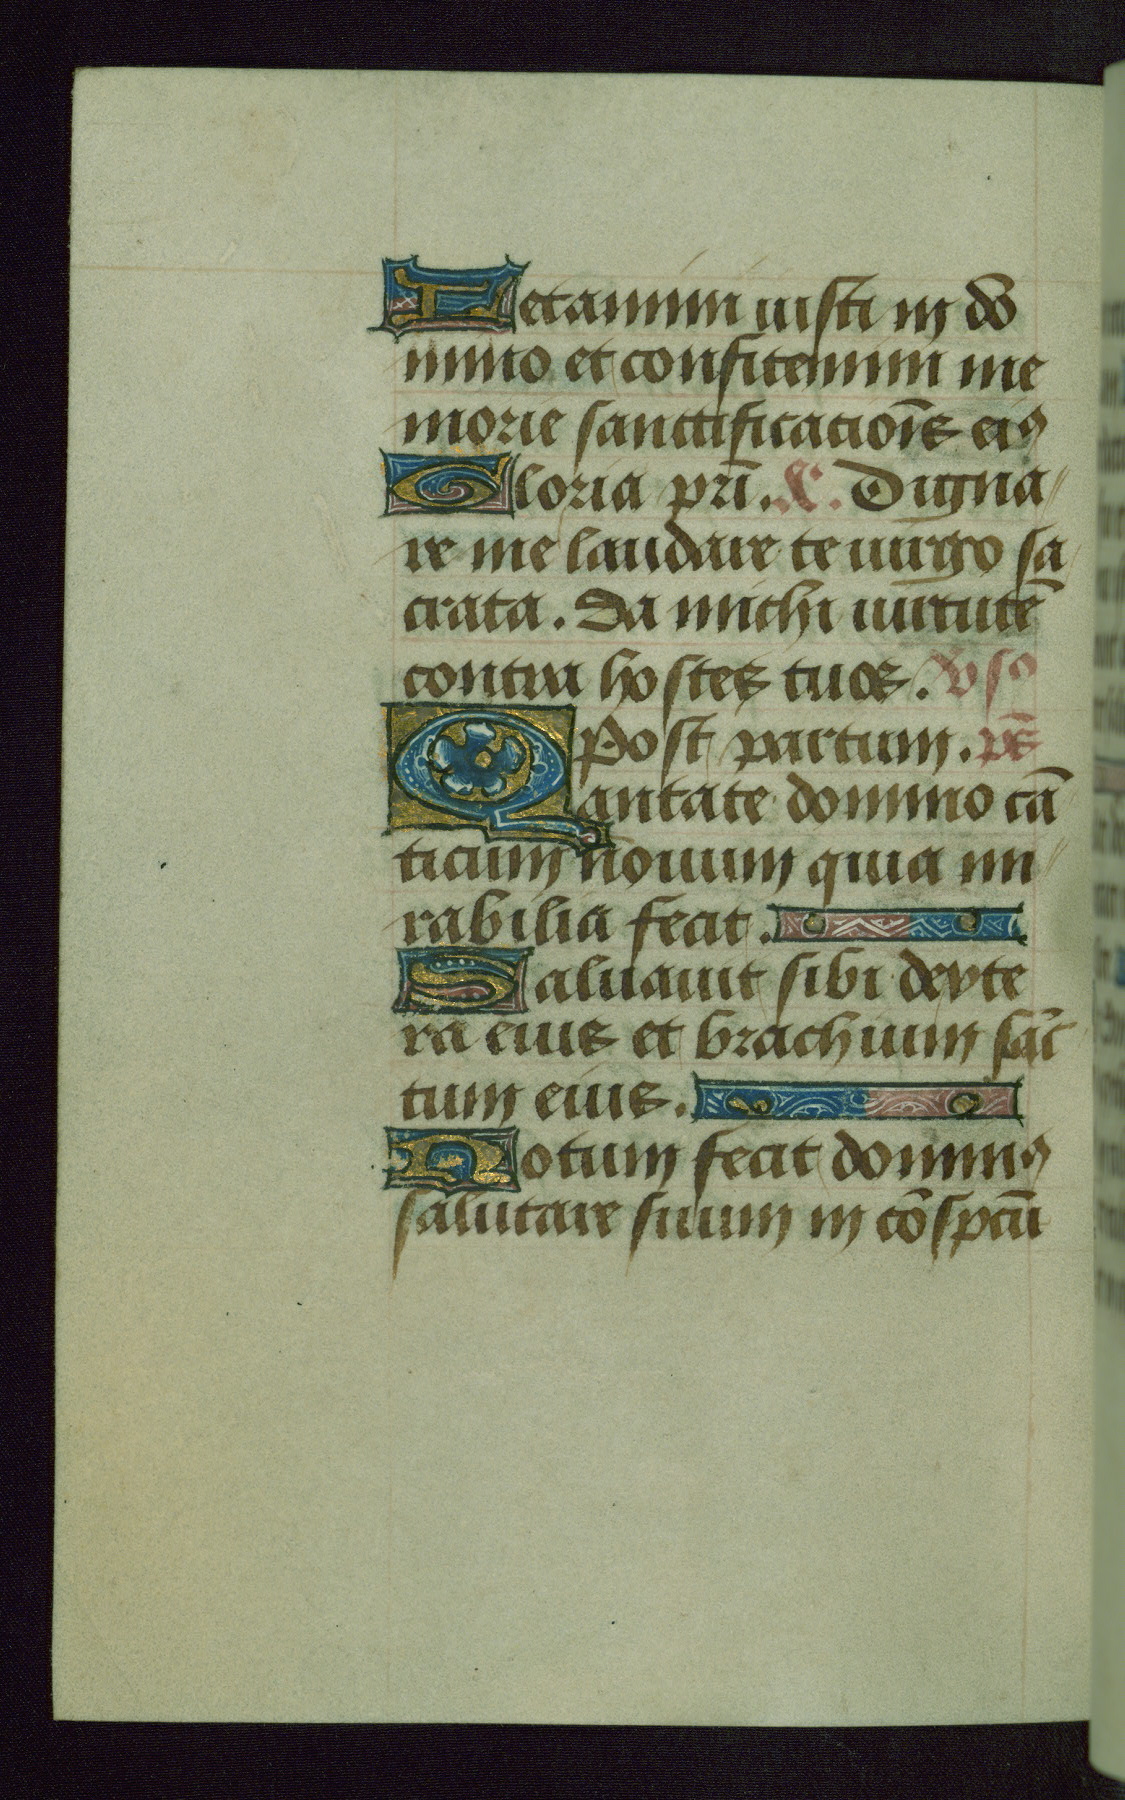 Letamini iusti in dō
mino et confitemini me
morie sanctificatiōis eiꝰ
Gloria pr̄i. A. Digna
re me laudare te uirgo sa
crata. Da michi uirtutē
contra hostes tuos. Vsꝰ
Post partum. ps̄
Qantate domino cā
ticum nouum quia mi
rabilia fecit.
Saluauit sibi dexte
ra eius et brachium sāc
tum eius.
Notum fecit dominꝰ
salutare suum in cōspcū